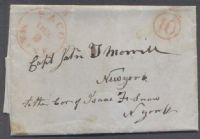 10
Capt John D Morrill
Newyork
to the Car of Isaac F Snow
N York